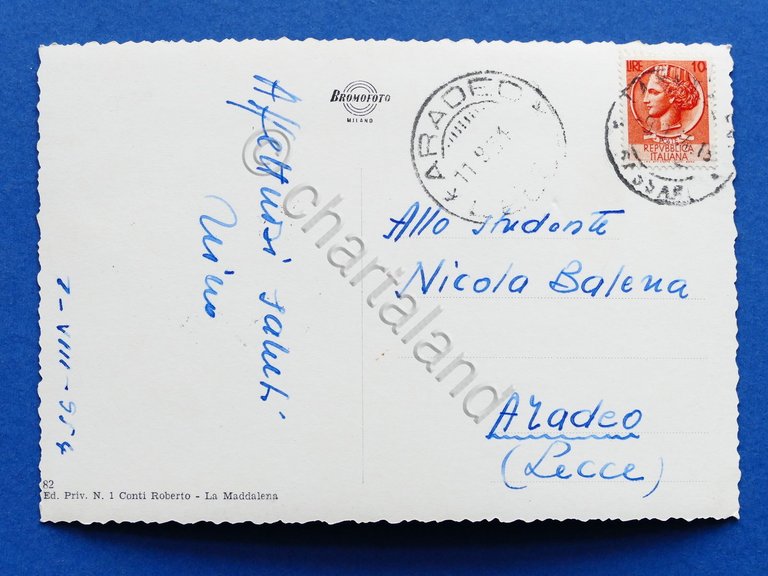 Affettuosi saluti
Nino
7-VIII-954
BROMOFOTO
MILANO
82
Ed. Priv. N. 1 Conti Roberto - La Maddalena
ARADEO
11.8.54
LIRE 10
REPVBBLICA
ITALIANA
SASSARI
Allo studente
Nicola Balena
Aradeo
(Lecce)
© chartaland